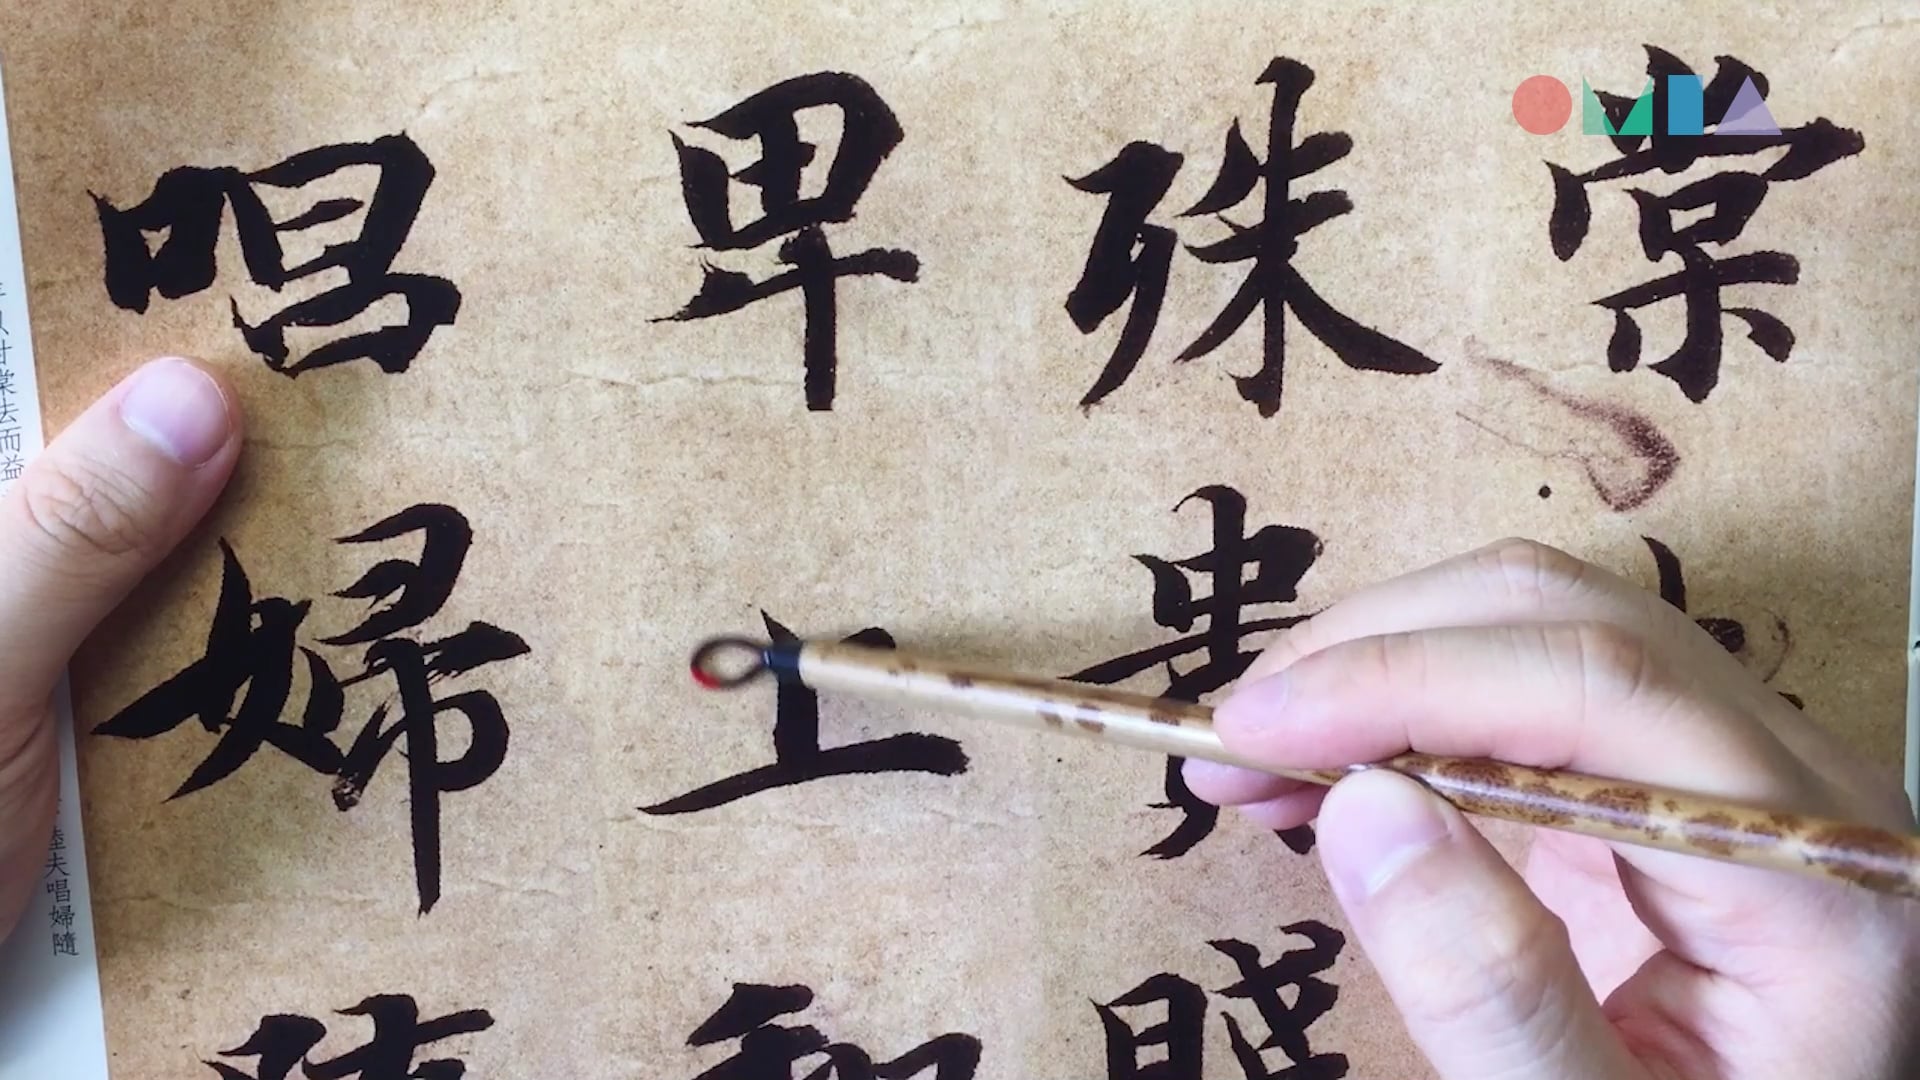 OMIA
棠
殊貴賤
卑上和
唱婦
以甘棠去而益
睦夫唱婦隨